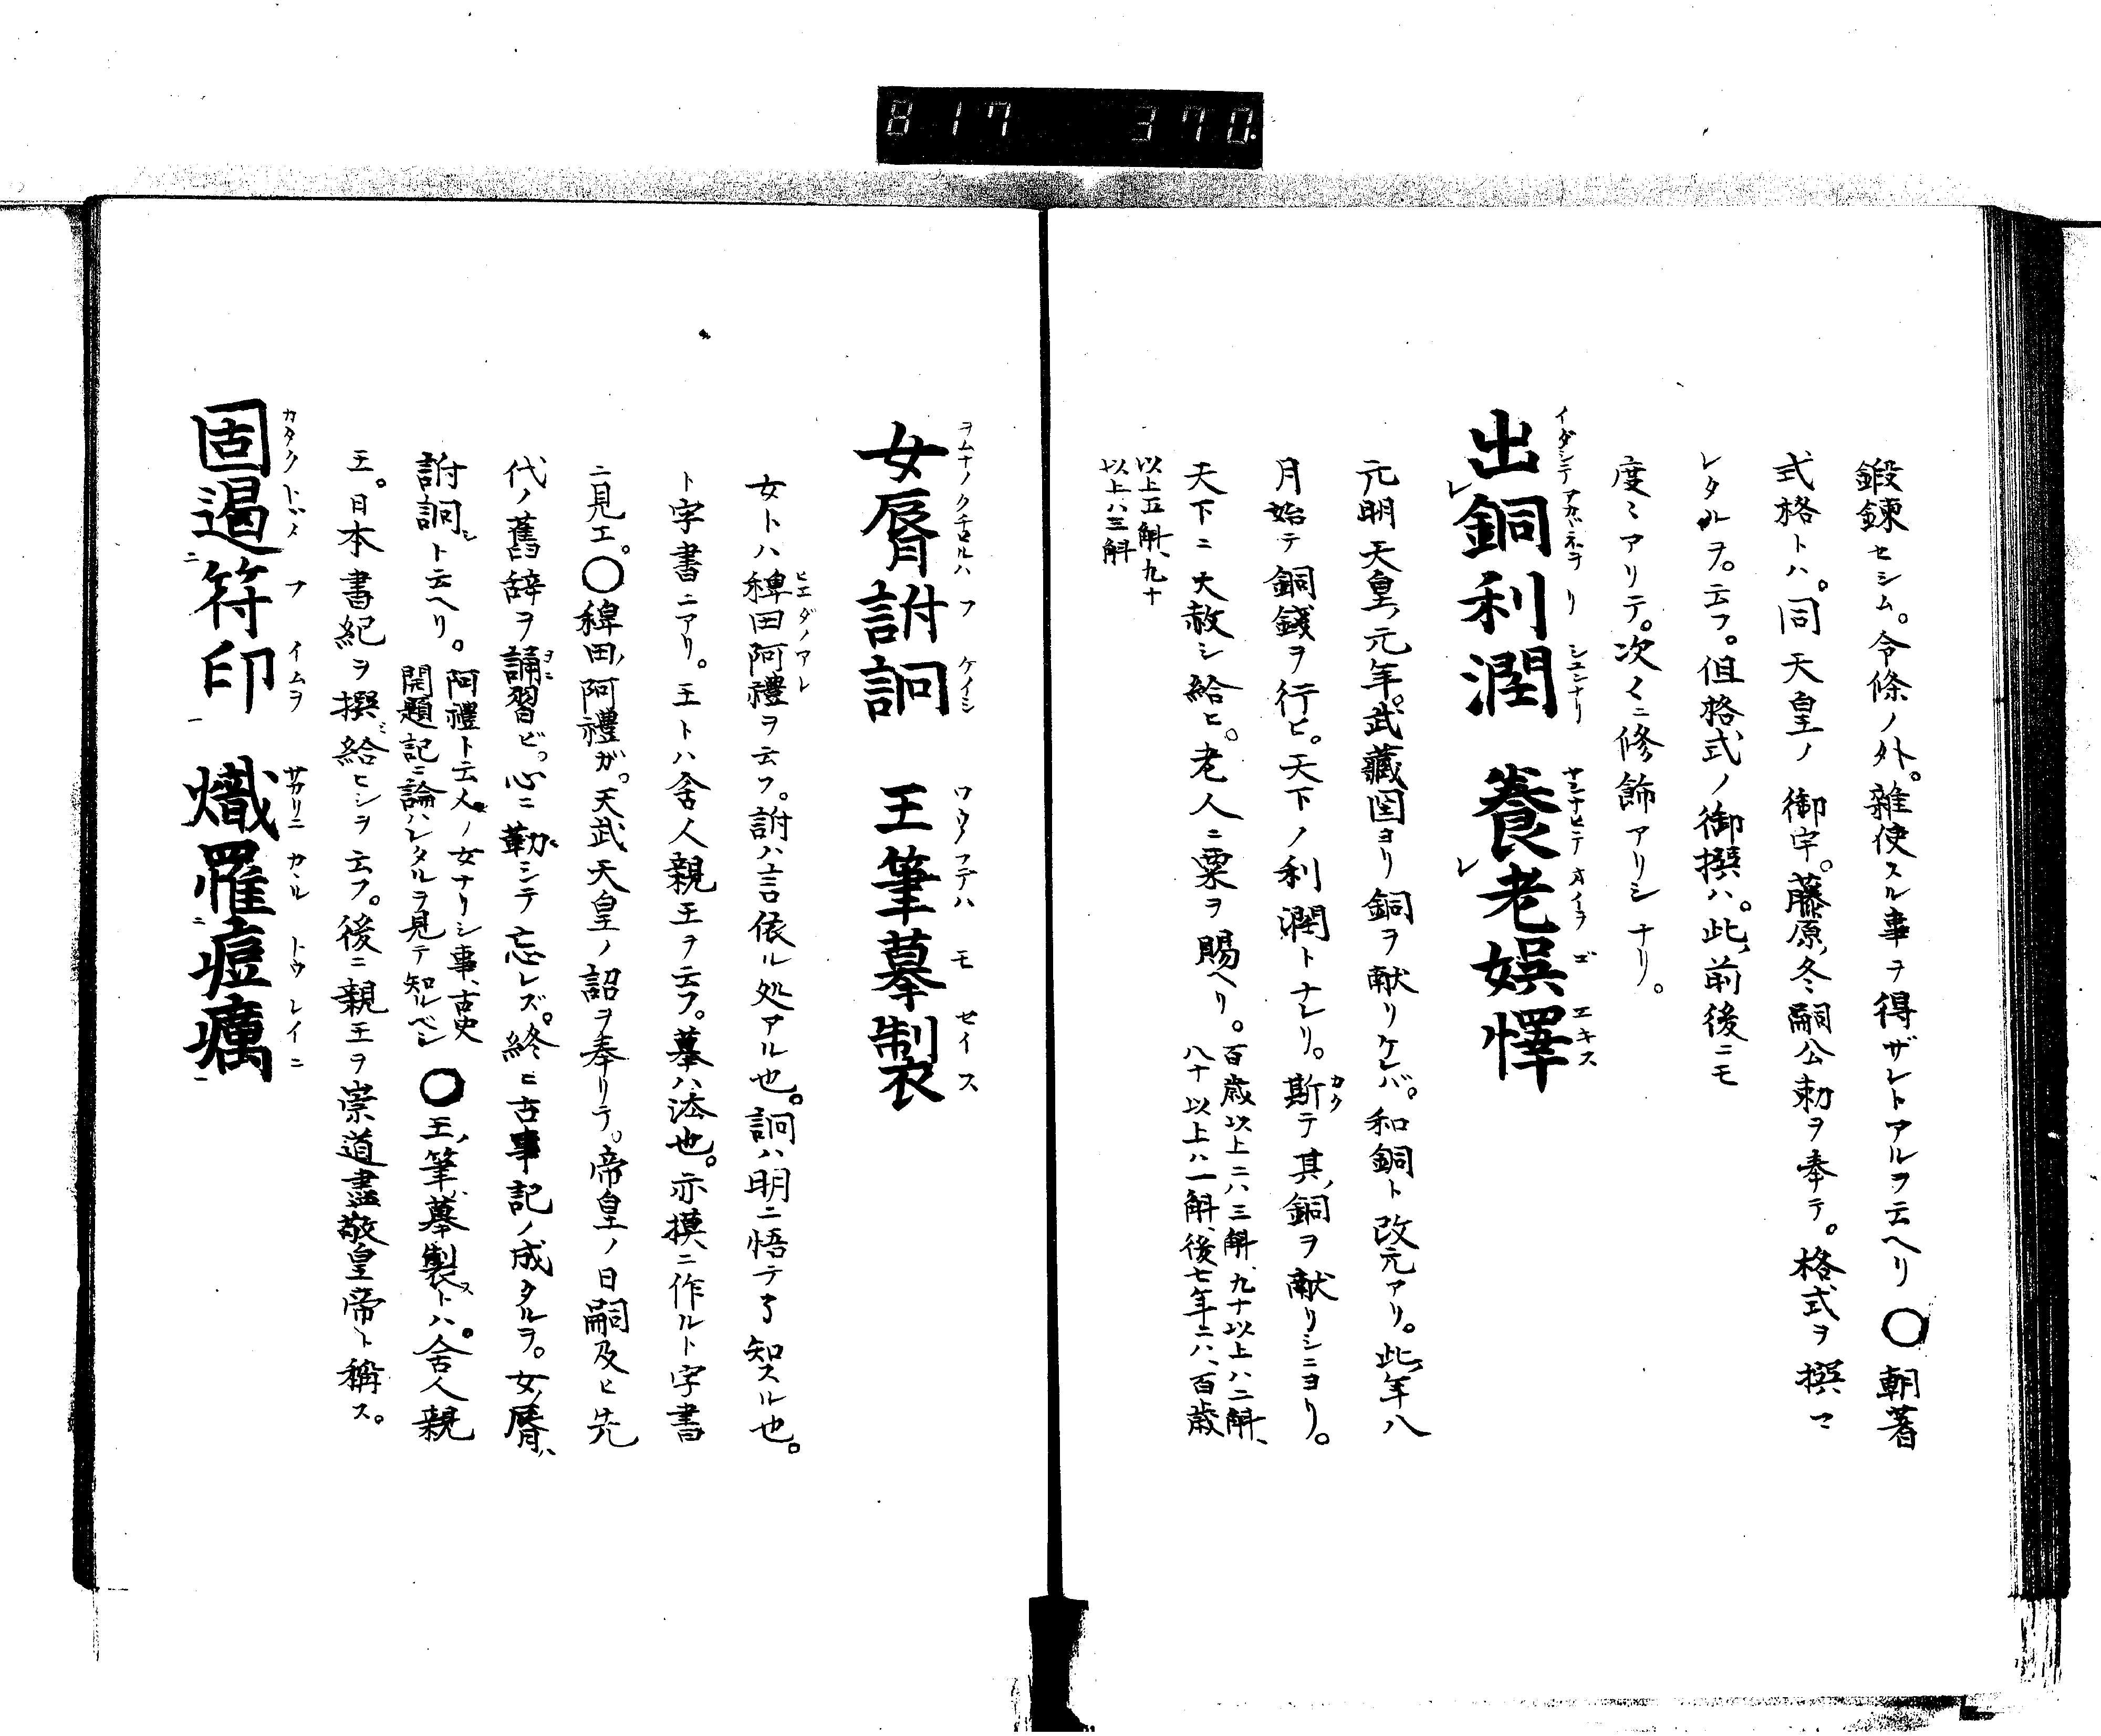 817 370.
鍛錬セシム。令條ノ外。雑使スル事ヲ得ザレトアルヲ云ヘリ ◯ 朝著
式格トハ。同天皇ノ御宇。藤原ノ冬嗣公勅ヲ奉テ。格式ヲ撰マ
レタルヲ。云フ。但格式ノ御撰ハ。此ノ前後ニモ
度〻アリテ。次〱ニ修飾アリシナリ。
出銅利潤 養老娯懌
イダシテアカガネヲ リ ヤシナヒテ オイヲ ゴ エキス
元明天皇ノ元年。武藏国ヨリ銅ヲ献リケレバ。和銅ト改元アリ。此ノ年八
月始テ銅錢ヲ行ヒ。天下ノ利潤トナレリ。斯テ其ノ銅ヲ献リシニヨリ。
カク
天下ニ大赦シ給ヒ。老人ニ粟ヲ賜ヘリ。
百歳以上ニハ三斛、九十以上ハ二斛、
八十以上ハ一斛、後七年ニハ、百歳
以上五斛、九十
以上ハ三斛
女脣詂詗 王筆摹製
ヲムナノクチビルハ フ ケイシ ワウノフデハ モ セイス
女トハ稗田阿禮ヲ云フ。詂ハ言依ル処アル也。詗ハ明ニ悟テ了知スル也。
ヒエダノアレ
ト字書ニアリ。王トハ舎人親王ヲ云フ。摹ハ法也。亦摸ニ作ルト字書
ニ見エ。◯稗田ノ阿禮ガ。天武天皇ノ詔ヲ奉リテ。帝皇ノ日嗣及ヒ先
代ノ舊辞ヲ誦習ヒ。心ニ勒シテ忘レズ。終ニ古事記ノ成タルヲ。女ノ脣ハ
詂詗シト云ヘリ。
阿禮ト云人ノ女ナリシ事、古史
開題記ニ論ハレタルヲ見テ知ルベシ
◯王ノ筆ハ摹製ストハ。舎人親
王。日本書紀ヲ撰給ヒシヲ云フ。後ニ親王ヲ崇道盡敬皇帝ト稱ス。
固遏符印 熾罹痘癘
カタクトドメ フ イムヲ サカリニ カヽル トウ レイニ